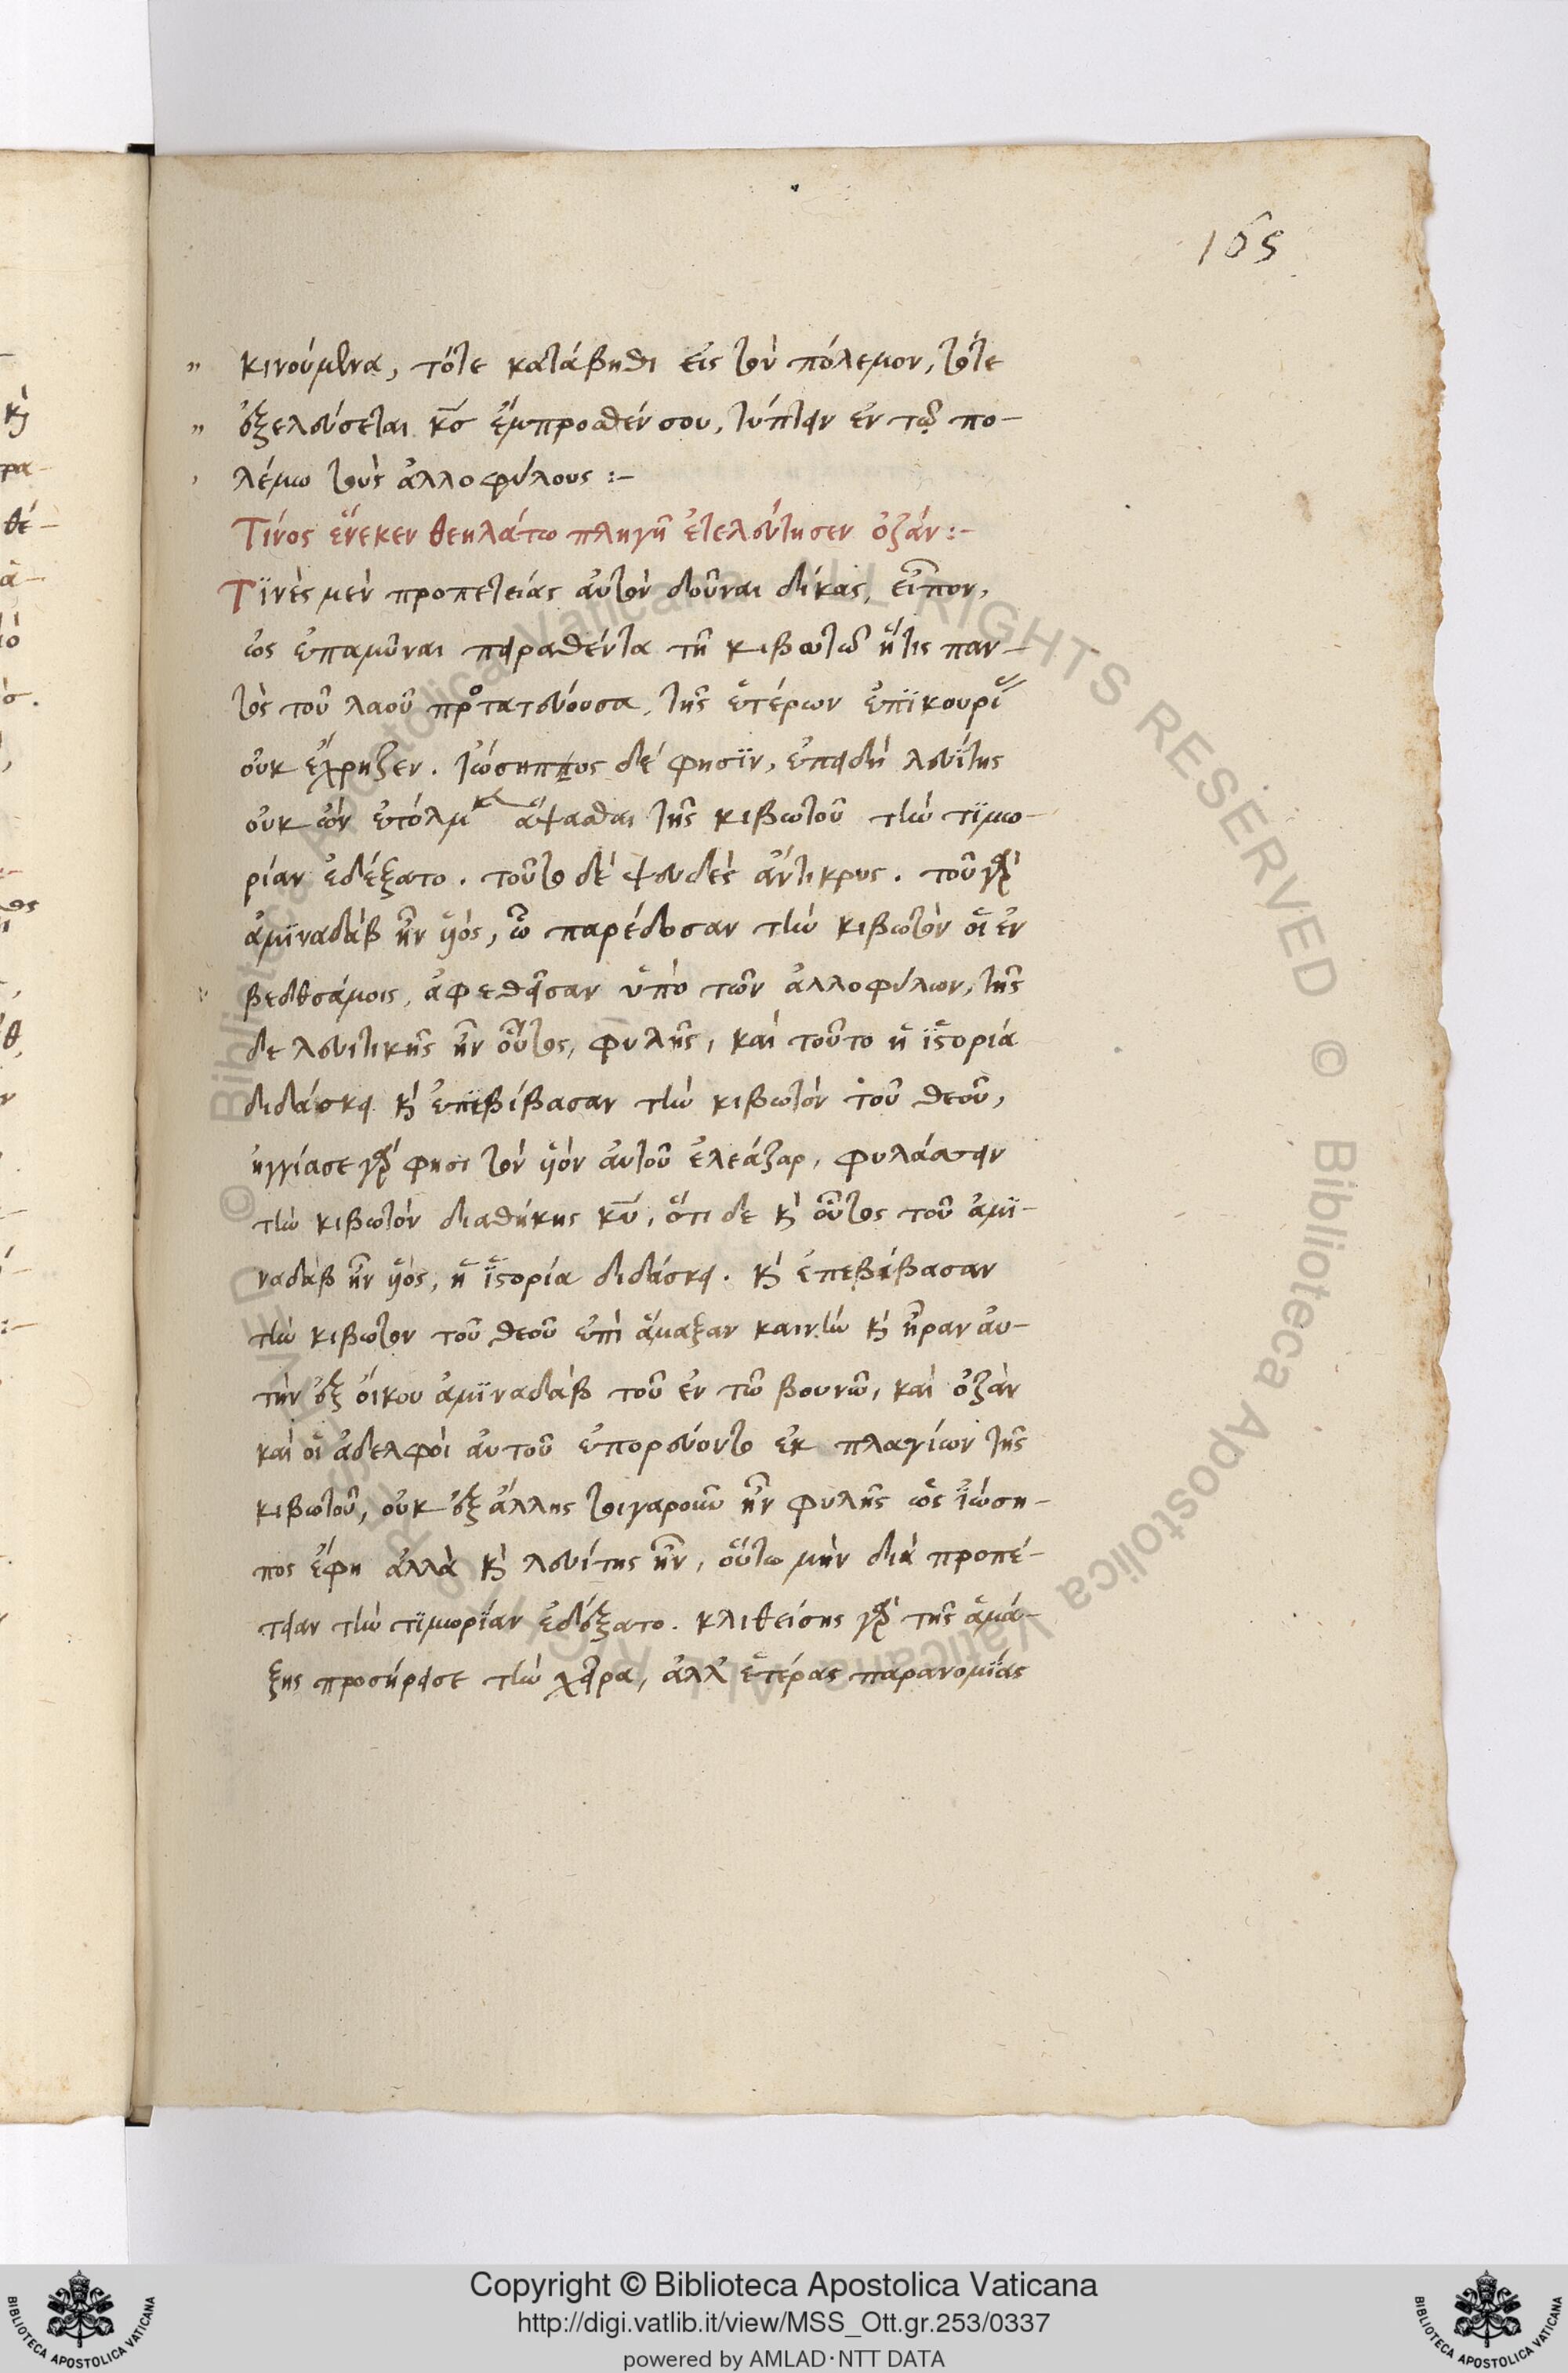 165
κινούμενα, τότε κατάβηθι εἰς τὸν πόλεμον, τότε
ἐξελεύσεται κς ἔμπροσθέν σου, τύπτειν ἐν τῷ πο-
λέμω τοὺς ἀλλοφύλους :-
Τίνος ἕνεκεν θεηλάτω πληγῆ ἐτελεύτησεν ὀζάν :-
Τϊνὲς μὲν προπετείας αὐτὸν δοῦναι δίκας, εἶπον,
ὡς ἐπαμῦναι πειραθέντα τῆ κιβωτῶ ἥτις παν-
τὸς τοῦ λαοῦ προτατεύουσα, τῆς ἑτέρων ἐπϊκουρί
οὐκ ἔχρηζεν. ἰώσηππος δέ φησϊν, ἐπειδὴ λευΐτης
οὐκ ὢν ἐτόλμ ἅψασθαι τῆς κιβωτοῦ τὴν τϊμω-
ρίαν ἐδέξατο. τοῦτο δὲ ψευδὲς ἄντικρυς. τοῦ γὰρ
ἀμϊναδὰβ ἦν ὑιός, ὧ παρέδοσαν τὴν κιβωτὸν οἱ ἐν
βεθσάμοις, ἀφεθεῖσαν ὑπὸ τῶν ἀλλοφύλων, τῆς
δε λευιτικῆς ἦν οὗτος, φυλῆς, καὶ τοῦτο ἡ ἱστορία
διδάσκει κὶ ἐπεβίβασαν τὴν κιβωτὸν τοῦ θεοῦ,
ἡγίασε γάρ φησι τὸν ὑιὸν αὐτοῦ ἐλεάζαρ, φυλάσσειν
τὴν κιβωτὸν διαθήκης κυ, ὅτι δε κὶ οὗτος τοῦ ἀμϊ-
ναδὰβ ἦν ὑιός, ἡ ἱστορία διδάσκει. κὶ ἐπεβίβασαν
τὴν κιβωτον τοῦ θεοῦ ἐπὶ ἅμαξαν καινὴν κὶ ἦραν αὐ-
τὴν ἐξ ὄικου ἀμϊναδὰβ τοῦ ἐν τῶ βουνῶ, καὶ ὀζὰν
καὶ οἱ ἀδελφοὶ αὐτοῦ ἐπορεύοντο ἐκ πλαγίων τῆς
κιβωτοῦ, οὐκ ἐξ ἄλλης τοιγαροῦν ἦν φυλῆς ὡς ἰώση-
πος ἔφη ἀλλὰ κὶ λευίτης ἦν, οὕτω μὴν διὰ προπέ-
τειαν τὴν τϊμωρΐαν ἐδέξατο. κλιθείσης γὰρ τῆς ἁμά-
ξης προσήρεισε τὴν χεῖρα, ἀλλ' ἑτέρας παρανομΐας
Copyright © Biblioteca Apostolica Vaticana
http://digi.vatlib.it/view/MSS_Ott.gr.253/0337
powered by AMLAD·NTT DATA